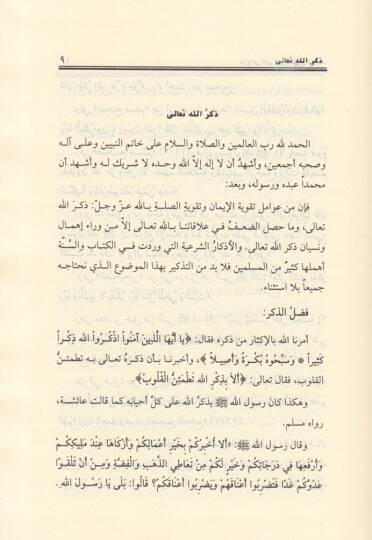 ذكر الله تعالى ٩
ذكرُ الله تعالى
الحمد لله رب العالمين والصلاة والسلام على خاتم النبيين وعلى آله
وصحبه أجمعين، وأشهدُ أن لا إله إلاّ الله وحده لا شريك له وأشهد أن
محمداً عبده ورسوله، وبعد:
فإن من عوامل تقوية الإيمان وتقوية الصلة بالله عزّ وجلّ: ذكرَ الله
تعالى، وما حصل الضعفُ في علاقاتنا بالله تعالى إلاّ من وراء إهمال
ونسيان ذكر الله تعالى. والأذكارُ الشرعية التي وردت في الكتاب والسُّنّة
أهملها كثيرٌ من المسلمين فلا بد من التذكير بهذا الموضوع الذي نحتاجه
جميعاً بلا استثناء.
فضلُ الذكر:
أمرنا الله بالإكثار من ذكره فقال: ﴿يا أَيُّهَا الَّذِينَ آمَنُوا اذْكُرُوا الله ذِكْراً
كَثِيراً * وَسَبِّحُوهُ بُكْرَةً وَأَصِيلاً﴾، وأخبرنا بأن ذكرهُ تعالى به تطمئنُّ
القلوب، فقال تعالى: ﴿أَلاَ بِذِكْرِ الله تَطْمَئِنُّ الْقُلُوبُ﴾.
وهكذا كان رسول الله ﷺ يذكرُ الله على كلّ أحيانه كما قالت عائشة،
رواه مسلم.
وقال رسول الله ﷺ: «أَلا أُخْبِرُكُمْ بِخَيْرِ أَعْمَالِكُمْ وَأَزْكَاهَا عِنْدَ مَلِيكِكُمْ
وَأَرْفَعِهَا فِي دَرَجَاتِكُمْ وَخَيْرٍ لَكُمْ مِنْ تَعَاطِي الذَّهَبِ وَالْفِضَّةِ وَمِنْ أَنْ تَلْقَوْا
عَدُوَّكُمْ غَدًا فَتَضْرِبُوا أَعْنَاقَهُمْ وَيَضْرِبُوا أَعْنَاقَكُمْ؟ قَالُوا: بَلَى يَا رَسُولَ الله.